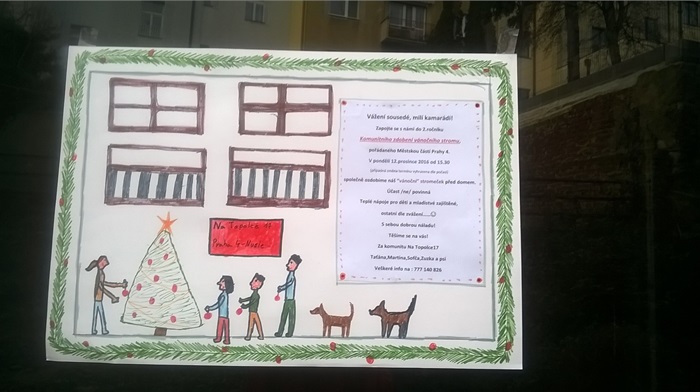 Na Topolce 17
Praha 4-Nusle
Vážení sousedé, milí kamarádi!
Zapojte se s námi do 2.ročníku
Komunitního zdobení vánočního stromu,
pořádaného Městskou částí Prahy 4.
V pondělí 12.prosince 2016 od 15.30
společně ozdobíme náš "vánoční" stromeček před domem.
Účast /ne/ povinná
Teplé nápoje pro děti a mladistvé zajištěné,
ostatní dle zvážení.....☺
S sebou dobrou náladu!
Těšíme se na vás!
Za komunitu Na Topolce17
Taťána,Martina,Sofča,Zuzka a psi
Veškeré info na : 777 140 826